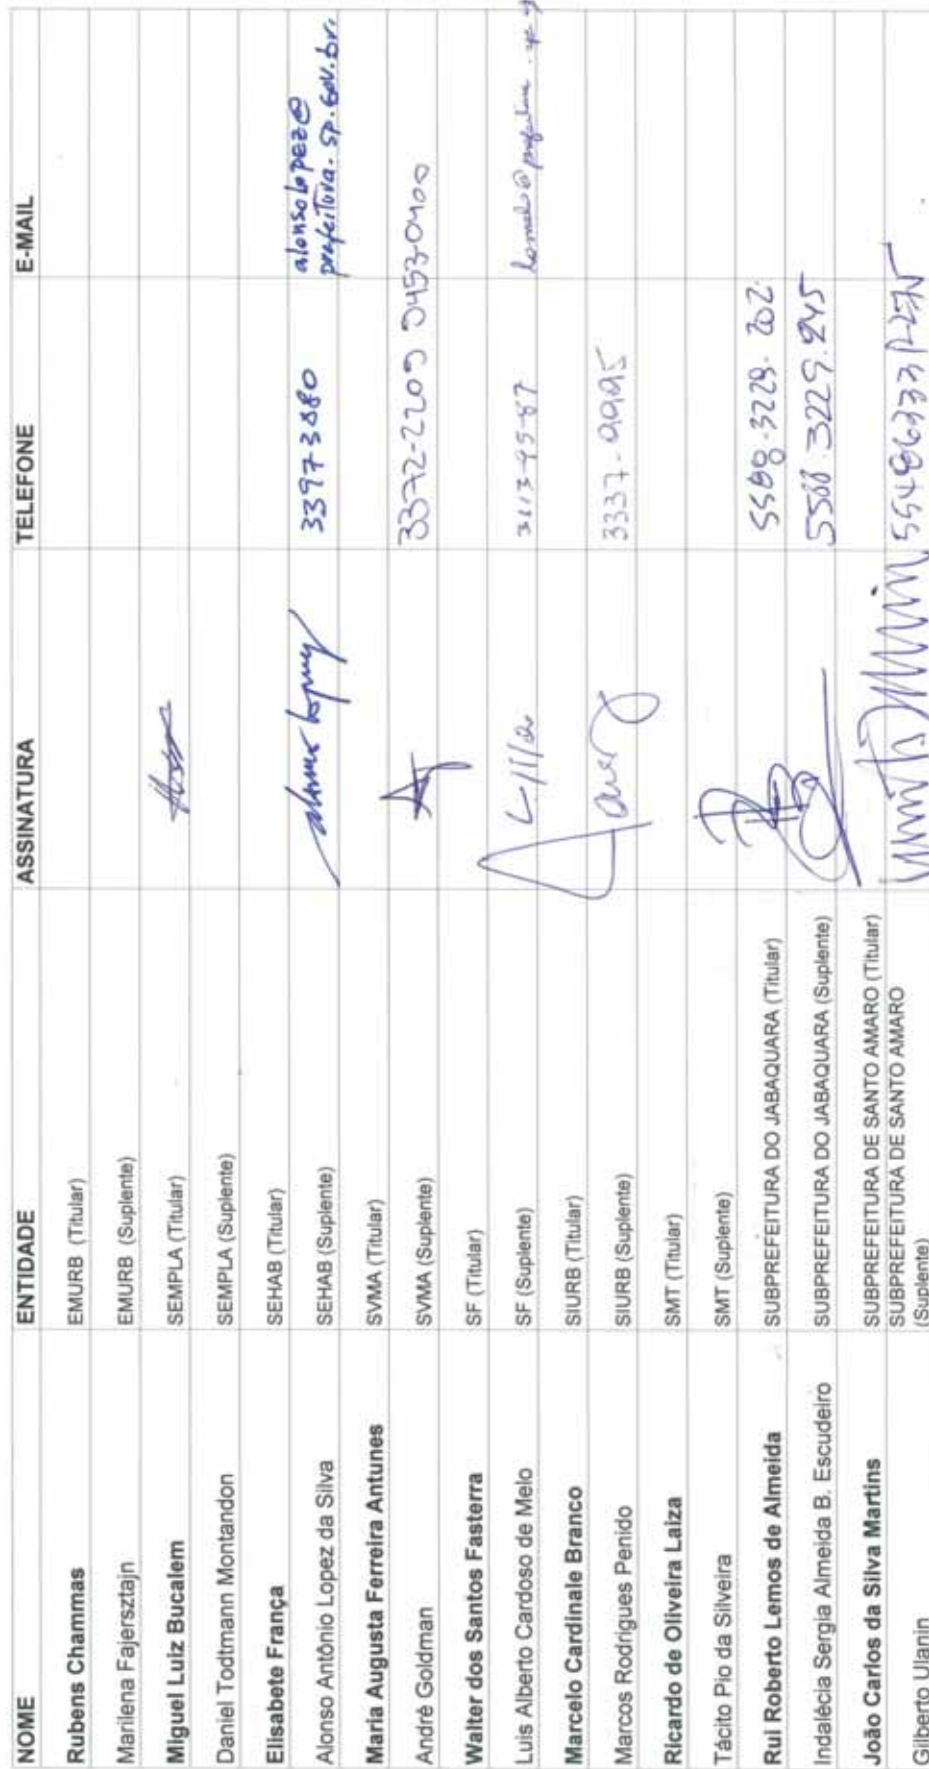 NOME ENTIDADE ASSINATURA TELEFONE E-MAIL
Rubens Chammas EMURB (Titular)
Marilena Fajersztajn EMURB (Suplente)
Miguel Luiz Bucalem SEMPLA (Titular)
Daniel Todtmann Montandon SEMPLA (Suplente)
Elisabete França SEHAB (Titular)
Alonso Antônio Lopez da Silva SEHAB (Suplente) 33973880 alonsolopez@
prefeitura.sp.gov.br.
Maria Augusta Ferreira Antunes SVMA (Titular)
André Goldman SVMA (Suplente) 3372-2209
Walter dos Santos Fasterra SF (Titular)
Luis Alberto Cardoso de Melo SF (Suplente)
Marcelo Cardinale Branco SIURB (Titular)
Marcos Rodrigues Penido SIURB (Suplente) 3337-9995
Ricardo de Oliveira Laiza SMT (Titular)
Tácito Pio da Silveira SMT (Suplente)
Rui Roberto Lemos de Almeida SUBPREFEITURA DO JABAQUARA (Titular)
Indalécia Sergia Almeida B. Escudeiro SUBPREFEITURA DO JABAQUARA (Suplente)
João Carlos da Silva Martins SUBPREFEITURA DE SANTO AMARO (Titular)
Gilberto Ulanin SUBPREFEITURA DE SANTO AMARO
(Suplente)